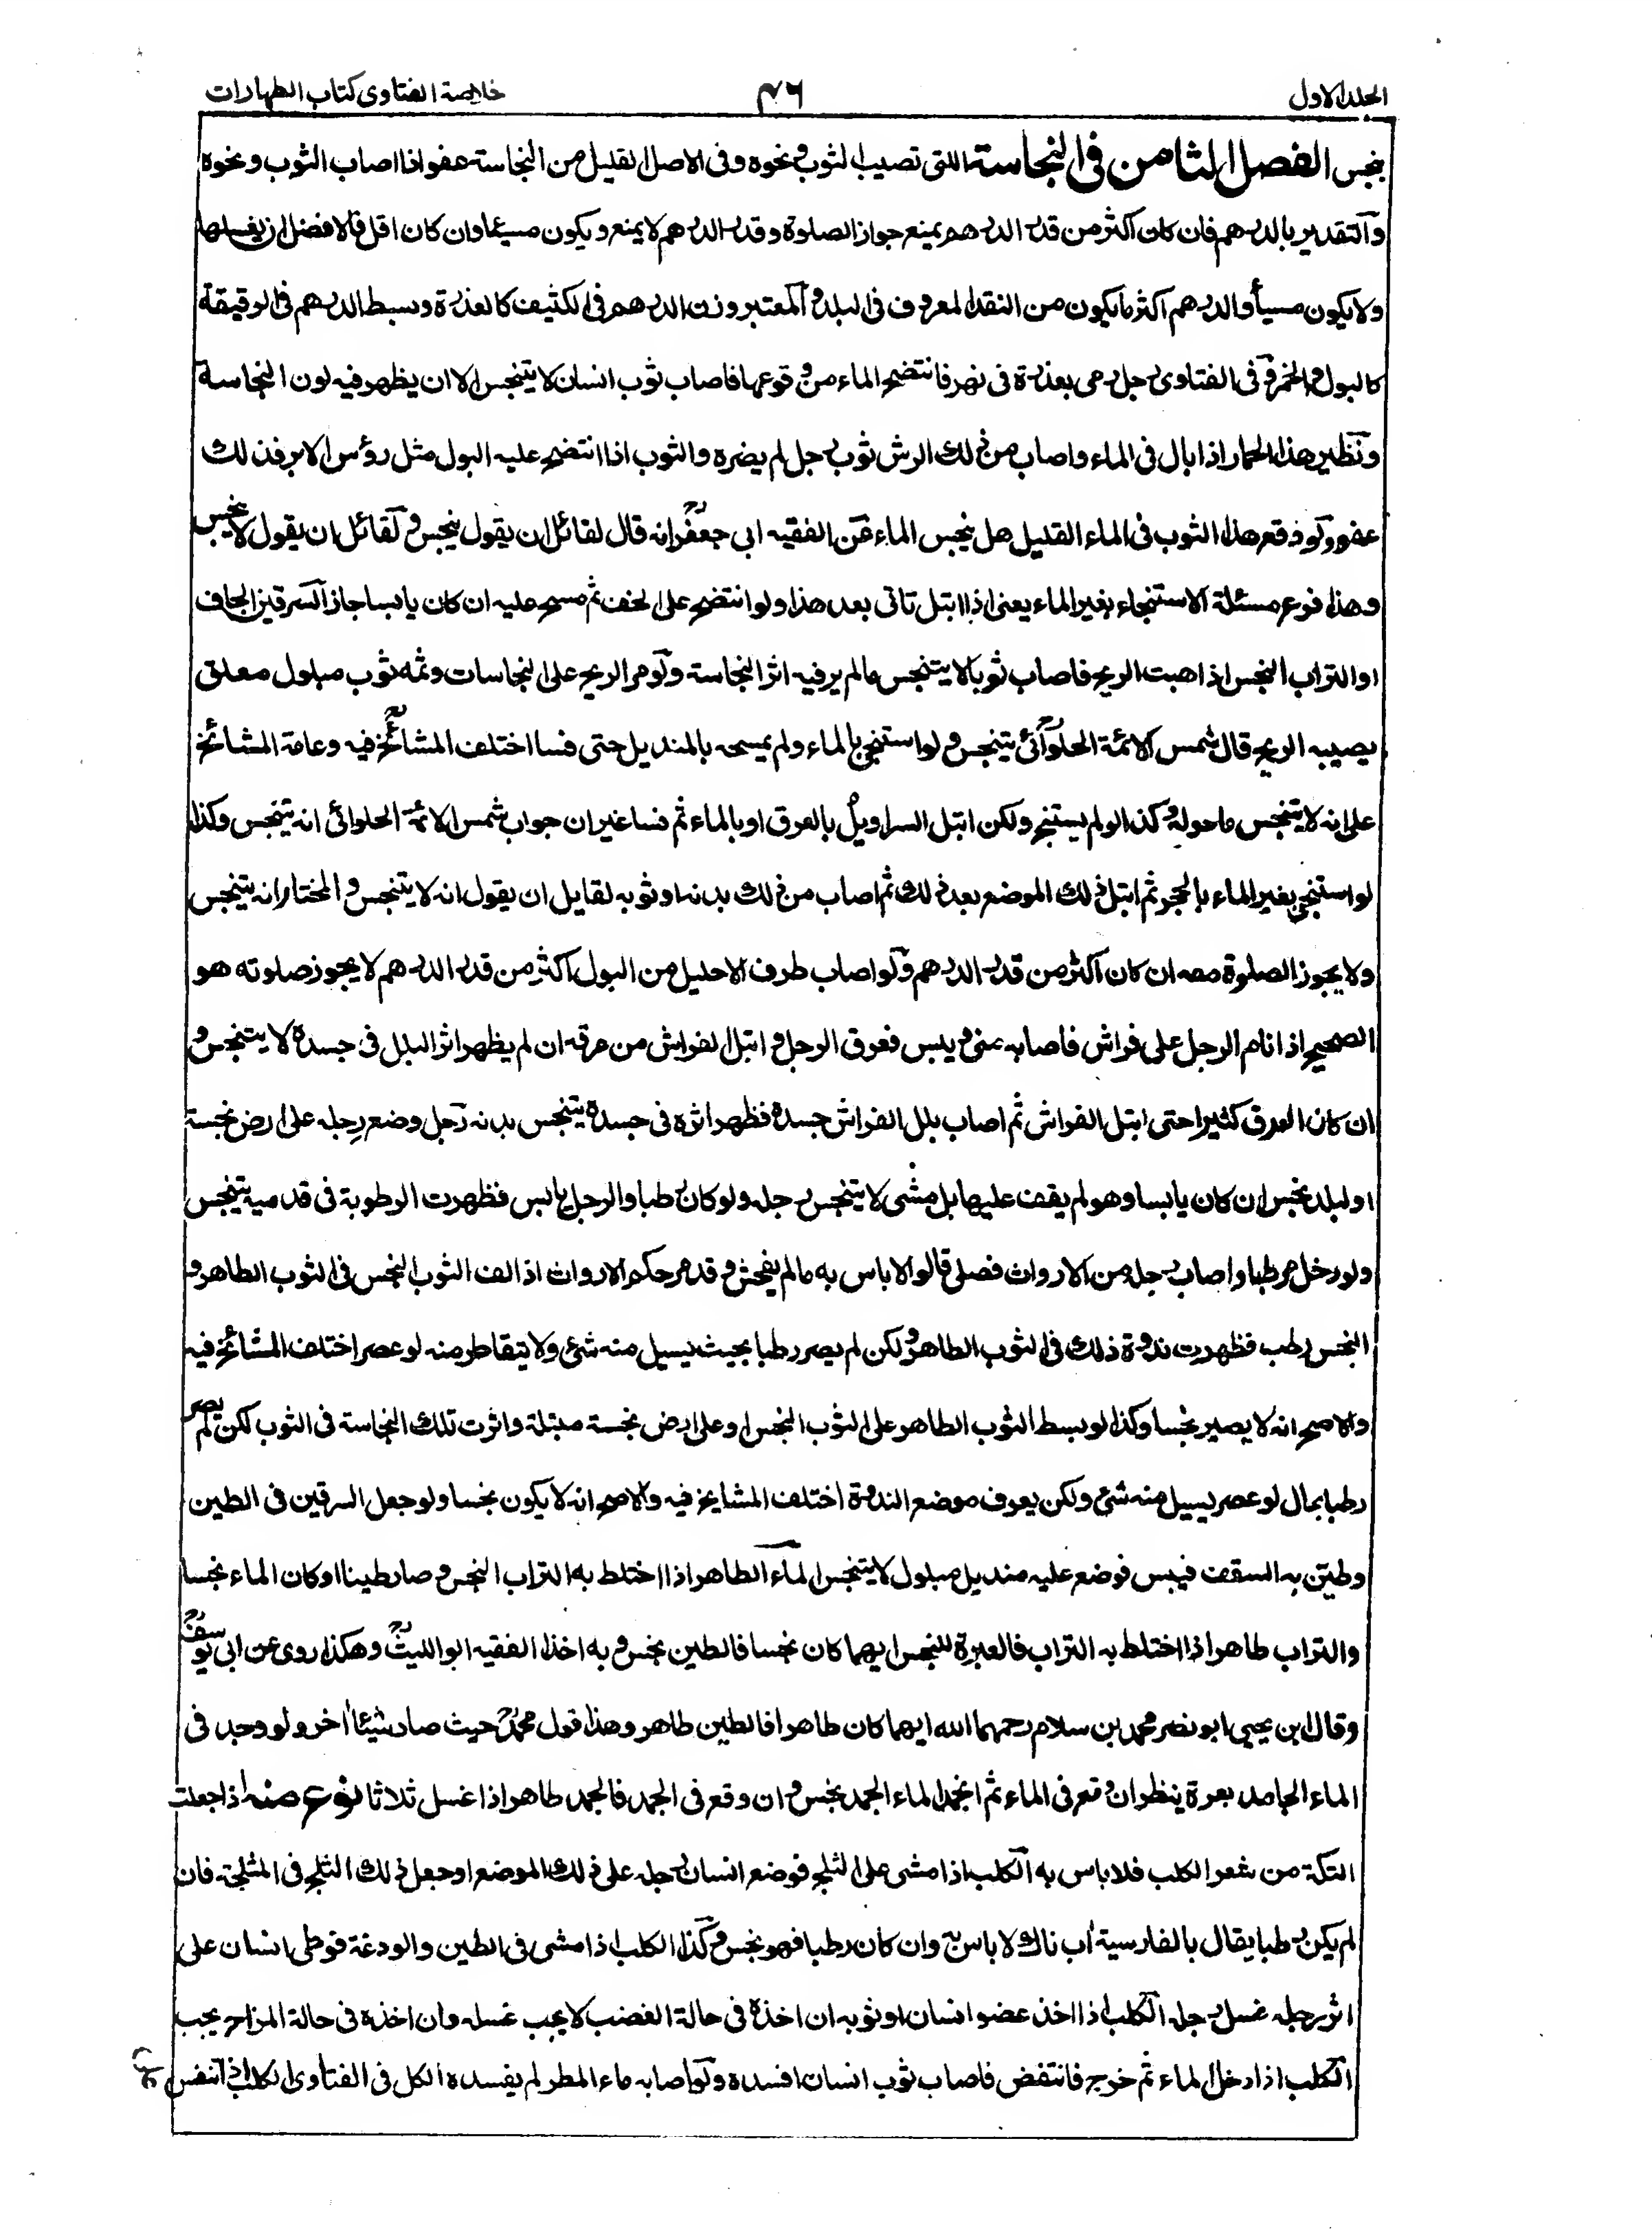 الجلد الاول ۴۶ خلاصة الفتاوى كتاب الطهارات
نجس الفصل الثامن فى النجاسة اللتى تصيب الثوب و نحوه و فى الاصل القليل من النجاسة عفو اذا اصاب الثوب و نحوه
و التقدير بالدرهم فان كان اكثر من قدر الدرهم يمنع جواز الصلوة و قدر الدرهم لا يمنع و يكون مسيئا وان كان اقل فالافضل ان يغسلها
ولا يكون مسيأ و الدرهم اكثر ما يكون من النقد المعروف فى البلد و المعتبر وزن الدرهم فى الكثيف كالعذرة و بسط الدرهم فى الرقيقة
كالبول و الخمر و فى الفتاوى رجل رمى بعذرة فى نهر فانتضح الماء من وقوعها فاصاب ثوب انسان لا يتنجس الا ان يظهر فيه لون النجاسة
و نظير هذا الحمار اذا بال فى الماء و اصاب من ذلك الرش ثوب رجل لم يضره والثوب اذا انتضح عليه البول مثل رؤس الابر فذلك
عفو و لو وقع هذا الثوب فى الماء القليل هل ينجس الماء فعن الفقيه ابى جعفرؒ انه قال لقائل ان يقول ينجس و لقائل ان يقول لا ينجس
و هذا فرع مسئلة الاستنجاء بغير الماء يعنى اذا ابتل تاتى بعد هذا ولو انتضح على الخف ثم مسح عليه ان كان يابسا جاز السرقين الجاف
او التراب النجس اذا هبت الريح فاصاب ثوبا لا يتنجس مالم ير فيه اثر النجاسة و لو مر الريح على النجاسات وثمه ثوب مبلول معلق
يصيبه الريح قال شمس الائمة الحلوائىؒ يتنجس و لو استنجى بالماء ولم يمسحه بالمنديل حتى فسا اختلف المشائخؒ فيه وعامة المشائخ
على انه لا يتنجس ما حوله و كذا لو لم يستنج ولكن ابتل السراويل بالعرق او بالماء ثم فسا غير ان جواب شمس الائمة الحلوائى انه يتنجس وكذا
لو استنجى بغير الماء بالحجر ثم ابتل ذلك الموضع بعد ذلك ثم اصاب من ذلك بدنه او ثوبه لقايل ان يقول انه لا يتنجس و المختار انه يتنجس
ولا يجوز الصلوة معه ان كان اكثر من قدر الدرهم و لو اصاب طرف الاحليل من البول اكثر من قدر الدرهم لا يجوز صلوته هو
الصحيح اذا نام الرجل على فراش فاصابه منى و يبس فعرق الرجل و ابتل الفراش من عرقه ان لم يظهر اثر البلل فى جسده لا يتنجس و
ان كان العرق كثيرا حتى ابتل الفراش ثم اصاب بلل الفراش جسده فظهر اثره فى جسده يتنجس بدنه رجل وضع رجله على ارض نجسة
او لبد نجس ان كان يابسا وهو لم يقف عليها بل مشى لا يتنجس رجله ولو كان رطبا والرجل يابس فظهرت الرطوبة فى قدميه يتنجس
ولو دخل مربطا و اصاب رجله من الارواث فصلى قالوا لا باس به مالم يفحش و قد مر حكم الارواث اذا لف الثوب النجس فى الثوب الطاهر و
النجس رطب فظهرت ندوة ذلك فى الثوب الطاهر و لكن لم يصر رطبا بحيث يسيل منه شئ ولا يتقاطر منه لو عصر اختلف المشائخ فيه
والاصح انه لا يصير نجسا وكذا لو بسط الثوب الطاهر على الثوب النجس او على ارض نجسة مبتلة واثرت تلك النجاسة فى الثوب لكن لم يصر
رطبا بحال لو عصر يسيل منه شئ ولكن يعرف موضع الندوة اختلف المشايخ فيه والاصح انه لا يكون نجسا ولو جعل السرقين فى الطين
وطين به السقف فيبس فوضع عليه منديل مبلول لا يتنجس الماء الطاهر اذا اختلط به التراب النجس و صار طينا او كان الماء نجسا
والتراب طاهر اذا اختلط به التراب فالعبرة للنجس ايهما كان نجسا فالطين نجس و به اخذ الفقيه ابو الليثؒ وهكذا روى عن ابى يوسفؒ
وقال ابن يحيى ابو نصر محمد بن سلام رحمهما الله ايهما كان طاهرا فالطين طاهر وهذا قول محمدؒ حيث صار شيئا اخر ولو وجد فى
الماء الجامد بعرة ينظر ان وقع فى الماء ثم انجمد الماء الجمد نجس و ان وقع فى الجمد فالجمد طاهر اذا غسل ثلاثا نوع منه اذا جعلت
التكة من شعر الكلب فلا باس به الكلب اذا مشى على الثلج فوضع انسان رجله على ذلك الموضع او جعل ذلك الثلج فى المثلجة فان
لم يكن رطبا يقال بالفارسية اب ناك لا باس به وان كان رطبا فهو نجس و كذا الكلب اذا مشى فى الطين والودغة فوطى انسان على
اثر رجله غسل رجله الكلب اذا اخذ عضو انسان او ثوبه ان اخذه فى حالة الغضب لا يجب غسله وان اخذه فى حالة المزاح يجب
الكلب اذا دخل الماء ثم خرج فانتفض فاصاب ثوب انسان افسده و لو اصابه ماء المطر لم يفسده الكل فى الفتاوى الكلب اذا انتفض